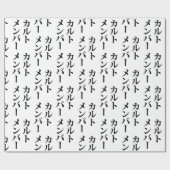 ト
メンバー
カルト
メンバー
カルト
メンバー
ト
メンバー
カルト
メンバー
カルト
メンバー
ト
メンバー
カルト
メンバー
カルト
メンバー
ト
メンバー
カルト
メンバー
カルト
メンバー